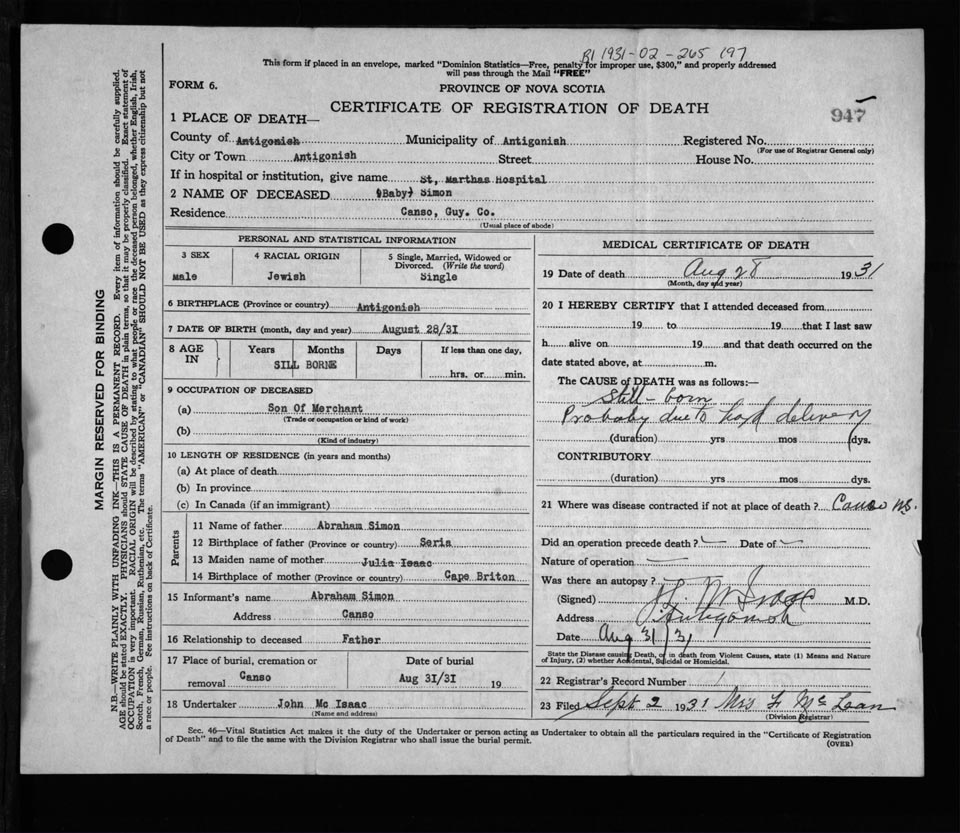 R1 1931-02-265 197
This form if placed in an envelope, marked "Dominion Statistics—Free, penalty for improper use, $300," and properly addressed
will pass through the Mail "FREE"
FORM 6.
PROVINCE OF NOVA SCOTIA
CERTIFICATE OF REGISTRATION OF DEATH
947
1 PLACE OF DEATH—
County of Antigonish Municipality of Antigonish Registered No.
(For use of Registrar General only)
City or Town Antigonish Street House No.
If in hospital or institution, give name St, Marthas Hospital
2 NAME OF DECEASED (Baby) Simon
Residence Canso, Guy. Co.
(Usual place of abode)
PERSONAL AND STATISTICAL INFORMATION
3 SEX 4 RACIAL ORIGIN 5 Single, Married, Widowed or
Divorced. (Write the word)
Male Jewish Single
6 BIRTHPLACE (Province or country) Antigonish
7 DATE OF BIRTH (month, day and year) August 28/31
8 AGE IN Years Months Days If less than one day,
SILL BORNE
hrs. or min.
9 OCCUPATION OF DECEASED
(a) Son Of Merchant
(Trade or occupation or kind of work)
(b)
(Kind of industry)
10 LENGTH OF RESIDENCE (in years and months)
(a) At place of death
(b) In province
(c) In Canada (if an immigrant)
Parents
11 Name of father Abraham Simon
12 Birthplace of father (Province or country) Seria
13 Maiden name of mother Julia Isaac
14 Birthplace of mother (Province or country) Cape Briton
15 Informant's name Abraham Simon
Address Canso
16 Relationship to deceased Father
17 Place of burial, cremation or Date of burial
removal Canso Aug 31/31 19
18 Undertaker John Mc Isaac
(Name and address)
MEDICAL CERTIFICATE OF DEATH
19 Date of death Aug 28 1931
(Month, day and year)
20 I HEREBY CERTIFY that I attended deceased from
19 to 19 that I last saw
h alive on 19 and that death occurred on the
date stated above, at m.
The CAUSE of DEATH was as follows:—
Still-born
Probaby due to hard delivery
(duration) yrs mos dys.
CONTRIBUTORY
(duration) yrs mos dys.
21 Where was disease contracted if not at place of death? Canso NS.
Did an operation precede death? Date of
Nature of operation
Was there an autopsy?
(Signed) M.D.
Address Antigonish
Date Aug 31/31
State the Disease causing Death, or in death from Violent Causes, state (1) Means and Nature
of Injury, (2) whether Accidental, Suicidal or Homicidal.
22 Registrar's Record Number 1
23 Filed Sept 2 1931 Mrs F McLean
(Division Registrar)
Sec. 46—Vital Statistics Act makes it the duty of the Undertaker or person acting as Undertaker to obtain all the particulars required in the "Certificate of Registration
of Death" and to file the same with the Division Registrar who shall issue the burial permit.
(OVER)
MARGIN RESERVED FOR BINDING
N.B.—WRITE PLAINLY WITH UNFADING INK—THIS IS A PERMANENT RECORD. Every item of information should be carefully supplied.
AGE should be stated EXACTLY. PHYSICIANS should STATE CAUSE OF DEATH in plain terms, so that it may be properly classified. Exact statement of
OCCUPATION is very important. RACIAL ORIGIN will be described by stating to what people or race the deceased person belonged, whether English, Irish,
Scotch, French, German, Russian, Ruthenian, etc. The terms "AMERICAN" or "CANADIAN" SHOULD NOT BE USED as they express citizenship but not
a race or people. See instructions on back of Certificate.